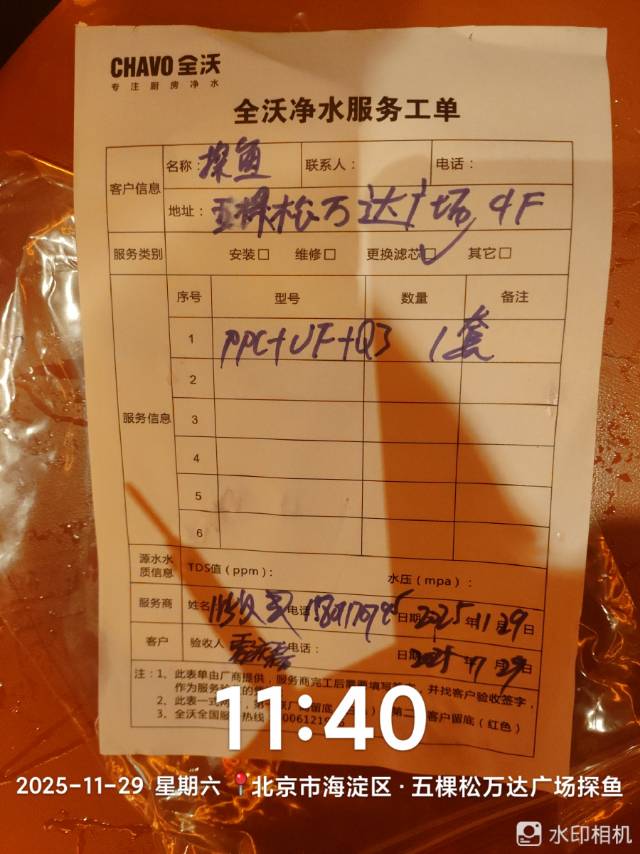 CHAVO 全沃
专注厨房净水
全沃净水服务工单
客户信息
名称：探鱼 联系人： 电话：
地址：五棵松万达广场 4F
服务类别 安装□ 维修□ 更换滤芯☑ 其它□
服务信息
序号 型号 数量 备注
1 PPC+UF+Q3 1套
2
3
4
5
6
源水水质信息 TDS值（ppm）： 水压（mpa）：
服务商 姓名 电话 日期 2025年11月29日
客户 验收人 电话： 日期 2025年11月29日
注：1、此表单由厂商提供，服务商完工后需要填写 并找客户验收签字，
作为服务
2、此表一式 留底 第二 客户留底（红色）
3、全沃全国服 热线 0061219
11:40
2025-11-29 星期六 北京市海淀区·五棵松万达广场探鱼
水印相机